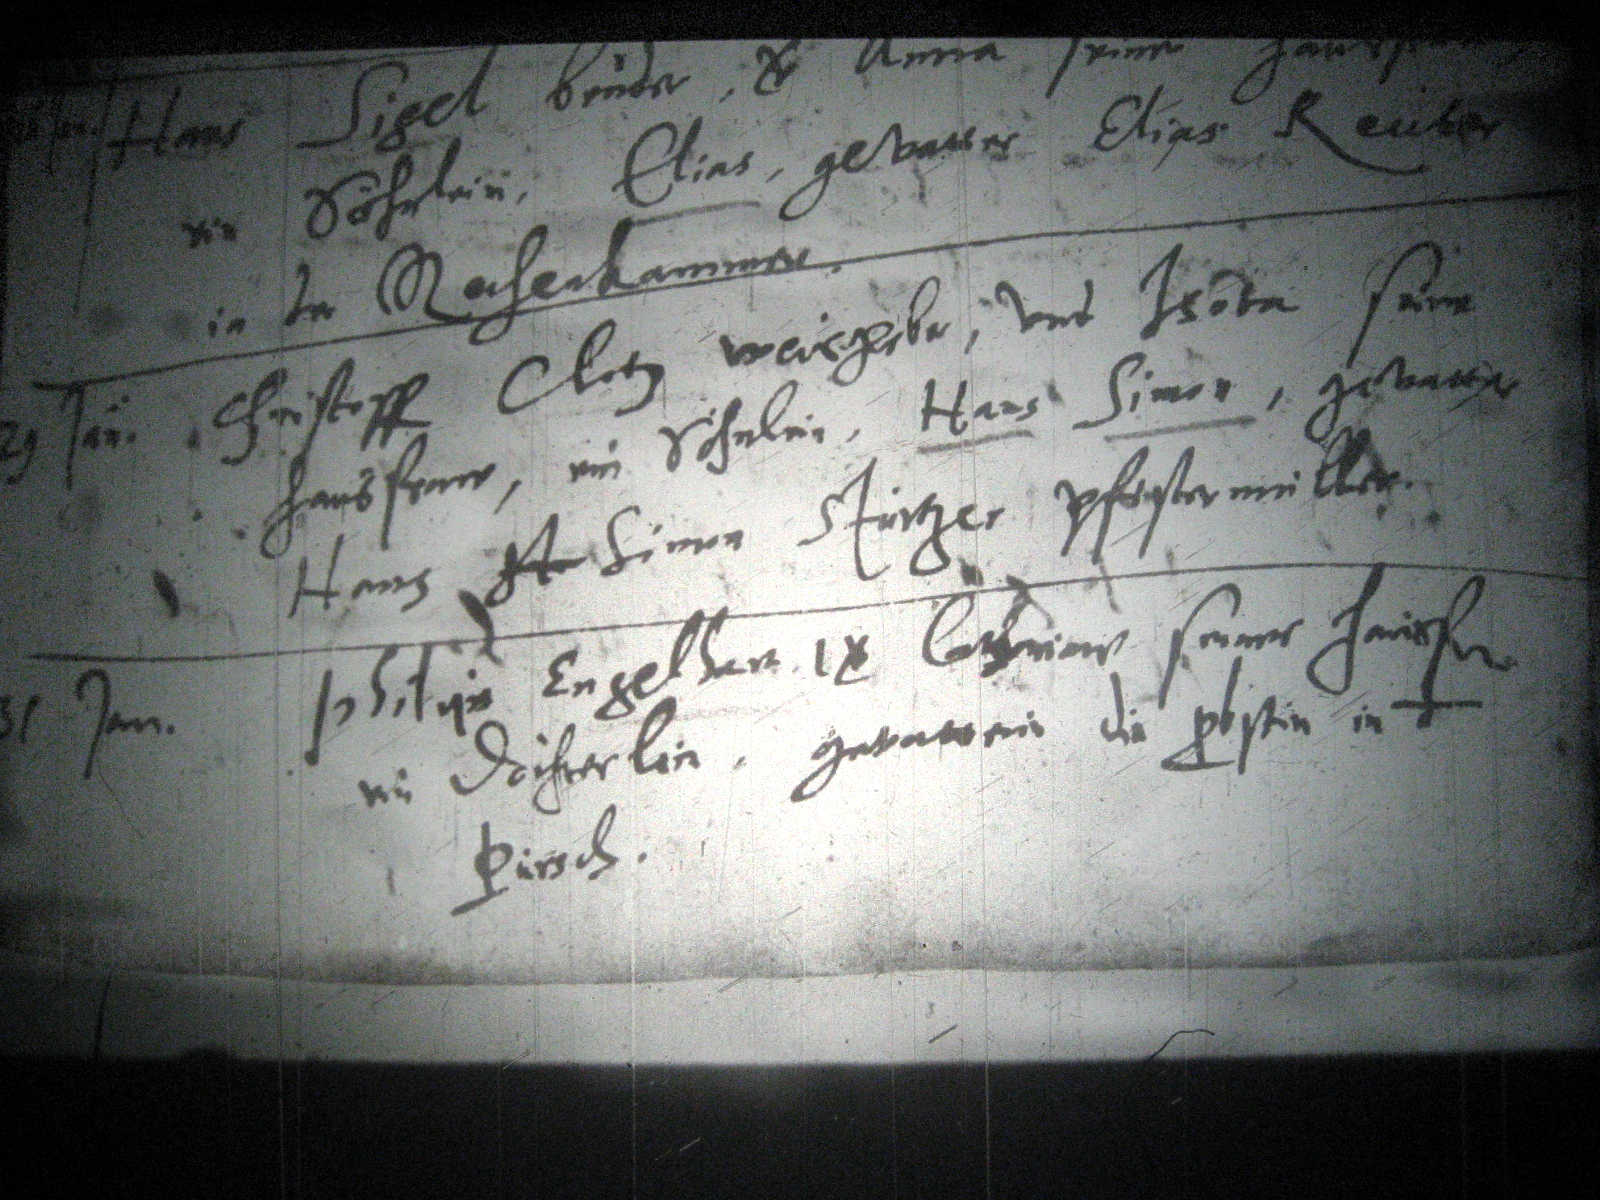 Hans Sigel binder, & Anna seiner hausfr
ein Söhnlein, Elias, gevatter Elias Reuter
in der Rechenkammer.
29 Jan. Christoff Clotz weisgerber, und
hausfraw, ein Söhnlein, Hans Simon, gevatter
Hans Simon Stürtzer pfistermüller.
31 Jan. Philips Engelhart & Catharinae seiner hausfr
ein Döchterlein, gevatterin die in